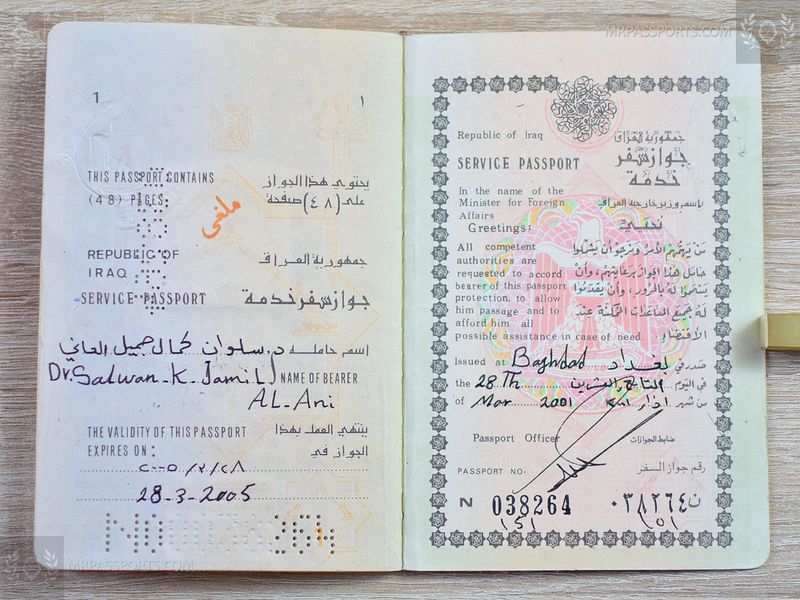 MRPASSPORTS.COM
1
١
THIS PASSPORT CONTAINS
(48) PAGES
يحتوي هذا الجواز
على (٤٨) صفحة
ملغى
REPUBLIC OF
IRAQ
جمهورية العراق
SERVICE PASSPORT
جواز سفر خدمة
اسم حامله د. سلوان كمال جميل العاني
Dr. Salwan-K-Jamil NAME OF BEARER
AL-Ani
THE VALIDITY OF THIS PASSPORT
EXPIRES ON:
ينتهي العمل بهذا
الجواز في
٢٠٠٥/٣/٢٨
28-3-2005
MRPASSPORTS.COM
Republic of Iraq
جمهورية العراق
SERVICE PASSPORT
جواز سفر
خدمة
In the name of the
Minister for Foreign
Affairs
باسم وزير خارجية العراق
Greetings:
تحتي
All competent
authorities are
requested to accord
bearer of this passport
protection, to allow
him passage and to
afford him all
possible assistance in case of need
من يهمهم الأمر ونرجو أن يشملوا
حامل هذا الجواز برعايتهم، وأن
يسمحوا له بالمرور، وأن يقدموا
له جميع المساعدات الممكنة عند
الاقتضاء
Issued at Baghdad
صدر في بغداد
the 28 Th
في اليوم الثامن والعشرين
of Mar 2001
من شهر اذار
Passport Officer
ضابط الجوازات
PASSPORT NO.
رقم جواز السفر
N 038264
ن ٠٣٨٢٦٤